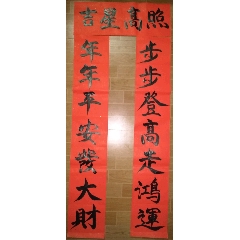 吉星高照
步步登高走鴻運
年年平安發大財